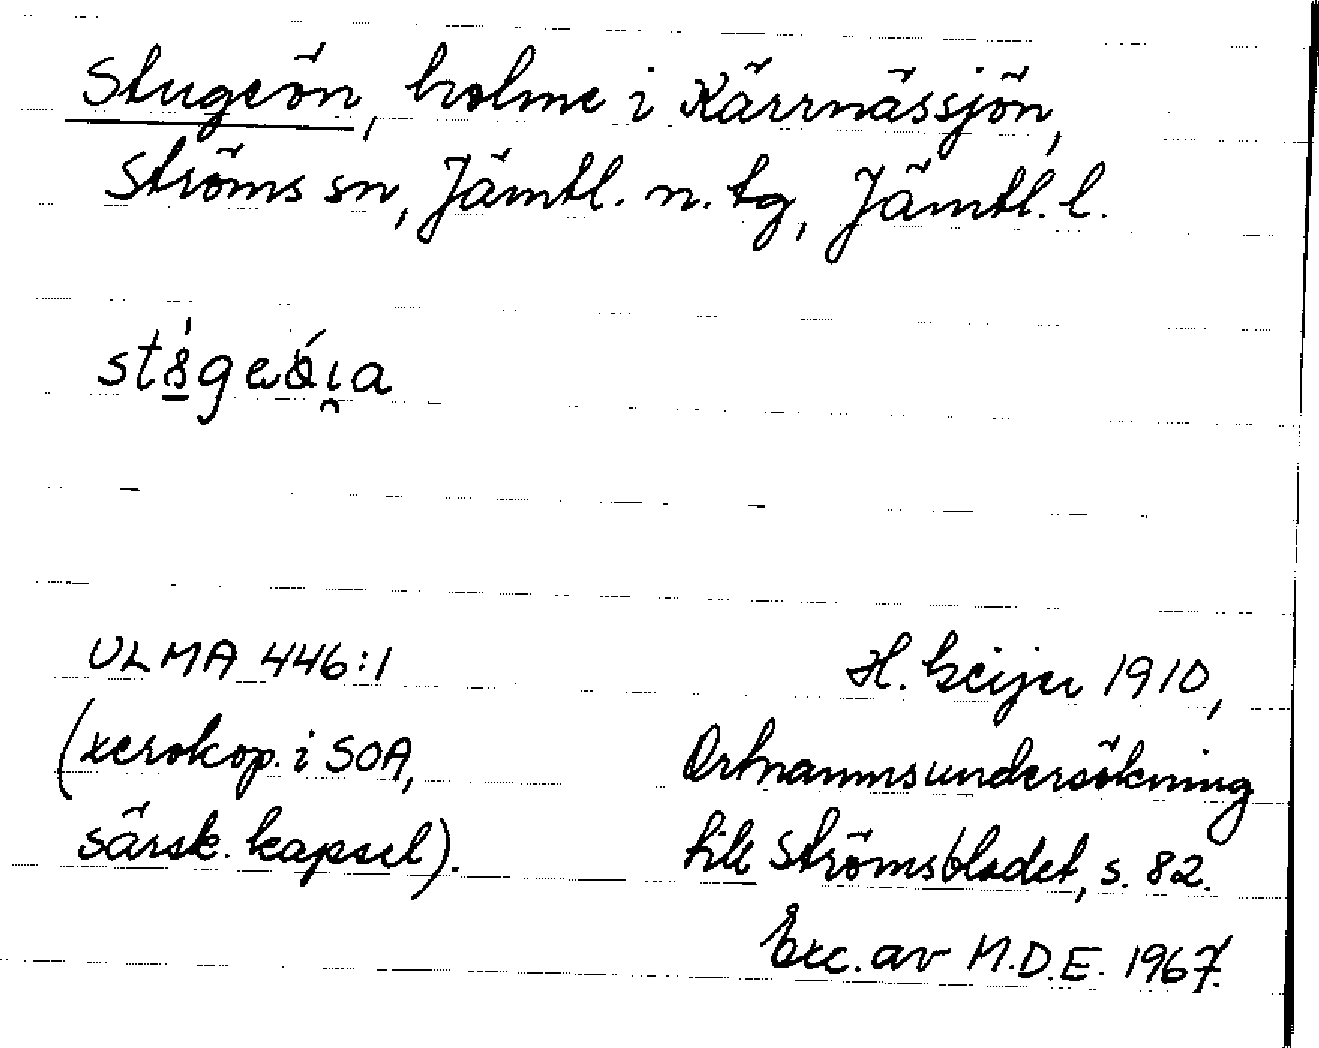 Stugeön, holme i Kärrnässjön,
Ströms sn, Jämtl. n. tg, Jämtl. l.
ULMA 446:1
(xerokop. i SOA,
särsk. kapsel).
H. Geijer 1910,
Ortnamnsundersökning
till Strömsbladet, s. 82.
Exc. av M.D.E. 1967.